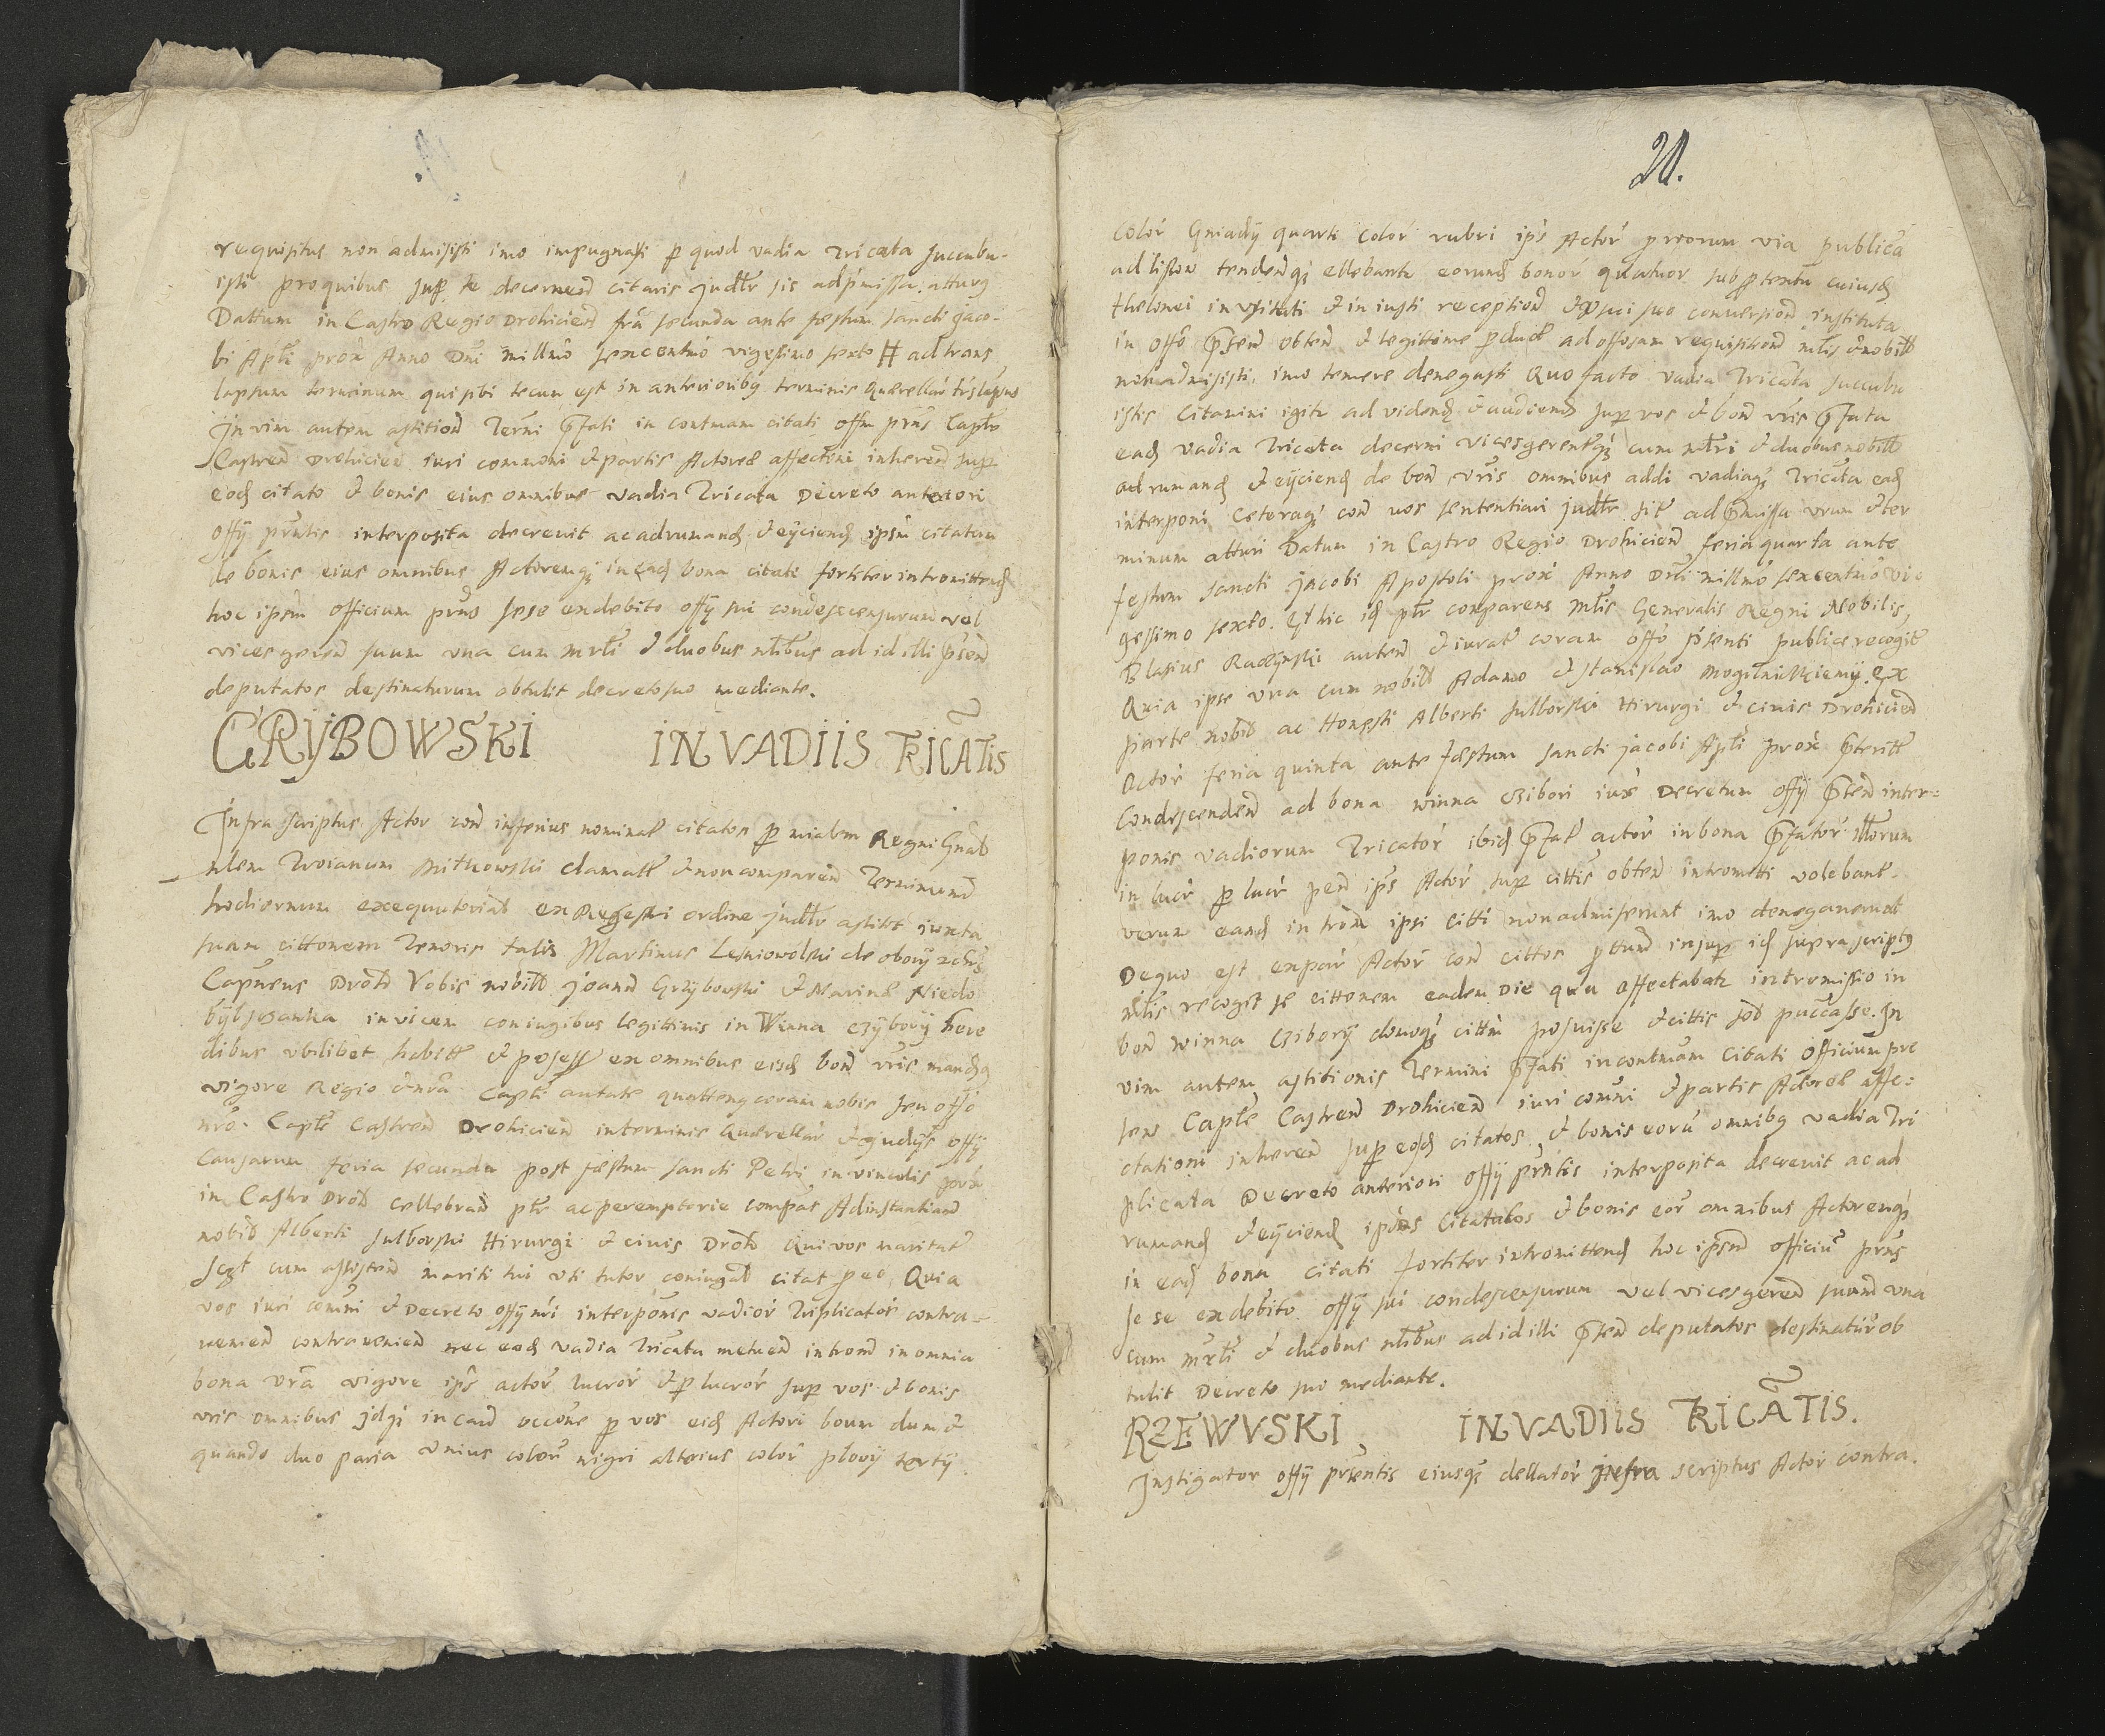 requisitus non admisisti imo impugnasti p quod vadia tricata succubu-
isti proquibus sup te decernend citaris judlr sis adpmissa atturg
Dattum in Castro Regio Drohiciend fria secunda ante festum sancti Jaco-
bi Apli prox Anno Dni millmo sexcentmo vigesimo sexto # ad trans
lapsum terminum qui sibi tecum est in anterioribg terminis Querellar trslapsus
In vim autem astitiond Termi pfati in contmam citati offm prns Capte
Castrend Drohicien iuri communi & partis Actorea affectoni inherend sup
eod citato & bonis eius omnibus vadia Tricata Decreto anteriori
offy prntis interposita decrevit ac adrumand & eyciend ipsm citatum
de bonis eius omnibus Actoremq in ead bona citati fortiter intromittend
hoc ipsm officium prns sese exdebito offy sui condescensurum vel
vicesgerend suum una cum mrli & duobus nlibus ad id illi psend
deputatos destinaturum obtulit decreto suo mediante.
GRYBOWSKI IN VADIIS TRICATIS
Infra scriptus Actor con inferius nominat citatos p mialem Regni Gnal
nlem Troianum Mitkowski clamatt & non comparend Terminum
hodiernum exequutorial ex Regestri ordine judlr astitit iuxta
suam cittonem Tenoris talis Martinus Lesniowolski de obory &c
Capneus Droh Vobis nobilb Joann Grzybowski & Marina Niedo
bylszanka invicem coniugibus legittimis in Winna Czybory here
dibus ubilibet habitt & possess ex omnibus eisd bond vris mandg
vigore Regio & nra Capli autate quatteng coram nobis seu offo
nro Capli Castrend Drohiciend interminis Querellar & Judys offy
Causarum feria secunda post festum sancti Petri in vinculis prox
in Castro Droh cellebrand ptr ac peremptorie compas Ad instantiam
nobib Alberti Sulborski Hirurgi & civis Droh Qui vos maritat
sczt cum assistend mariti tui uti tutor coniugal citat peo, Quia
vos iuri comni & Decreto offy nri interponis vadior Triplicator contra-
veniend contraveniend nec eod vadia Tricata metuend introm in omnia
bona vra vigore ips actor lucror & p lucror sup vos & bonis
vris omnibus jdq in caud occone p vos eid Actori boum dum &
quando duo paria unius color nigri alterius color plowy terty
20.
Color Gniady quarti color rubri ips Actor proorum via publica
ad liston tendendq ellebantr eorund bonor quatuor sub ptextu cuiusd
thelonei in usitati & in iusti receptiond & suo conversiond instituta
in offo psend obtend & legittime pduct ad offosam requisitiond mlis & nobilb
non admisisti, imo temere denegasti Quo facto vadia Tricata succubu
istis Citamini igitr ad vidend & audiend sup vos & bond vris pfata
ead vadia tricata decerni vicesgerentq cum mlri & duobus nobilb
adrumand & eyciend de bon vris omnibus addi vadiaq Tricata ead
interponi Ceteraq con vos sententiari judlr sit adpmissa vrum & ter
minum atturi Datum in Castro Regio Drohiciend feria quarta ante
festum sancti Jacobi Apostoli prox Anno Dni millmo sexcentmo vi
gessimo sexto. Et hic id ptr comparens mlis Generalis Regni Nobilis,
Blasius Raczynski autend & iurat coram offo psenti publice recogit
Quia ipse una cum nobilb Adamo & Stanislao Mogilnickiemy. Ex
parte nobib ac Honesti Alberti Sulborski Hirurgi & civis Drohiciend
Actor feria quinta ante festum sancti Jacobi Apli prox pteritt
Condescendend ad bona winna Czibori iux Decretum offy psend inter-
ponis vadiorum Tricator ibid pfat actor in bona pfator illorum
in lucr p lucr pend ips Actor sup cittis obtend intromitti volebant.
verum eand introm ipsi citti non admiserunt imo denegaverunt
Dequo est expar Actor con cittos pttund insup id supra scriptg
mlis recogit se cittonem eadem Die qua affectabatr intromissio in
bond winna Czibory domoq cittm posuisse & cittis sod puccasse. In
vim autem astitionis Termini pfati in contmam Citati officium pre
sens Capte Castrend Drohiciend iuri comni & partis Actorea affe-
ctationi inherend sup eosd citatos & bonis eoru omnibg vadia Tri
plicata Decreto anteriori offy prntis interposita decrevit ac ad
rumand & eyciend ipsos Citatos & bonis eor omnibus Actoremq
in ead bona citati fortiter intromittend hoc ipsnd officiu prns
se se exdebito offy sui condescensurum vel vicesgerend suum una
cum mrli & duobus nlibus ad id illi psend deputatos destinatur ob
tulit Decreto sui mediante.
RZEWVSKI IN VADIIS TRICATIS.
Instigator offy prsentis eiusq dellator Infra scriptus Actor contra.